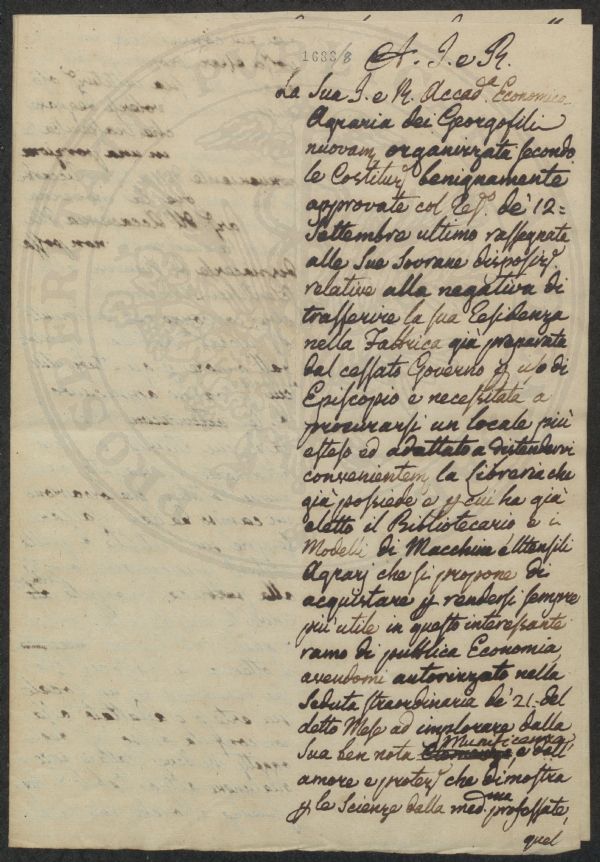 1688/8
A. I. e R.
La Sua I. e R. Accad.a Economico
Agraria dei Georgofili
nuovam. organizzata secondo
le Costituz. benignamente
approvate col de' 12=
Settembre ultimo rassegnate
alle Sue Sovrane disposiz.
relative alla negativa di
trasferire la sua Residenza
nella Fabrica già preparata
dal cessato Governo p uso di
Episcopio e necessitata a
procurarsi un locale più
esteso ed adattato a distendervi
convenientem. la Libreria che
già possiede e p cui ha già
eletto il Bibliotecario e i
Modelli di Macchine e Utensili
Agrarj che si propone di
acquistare p rendersi sempre
più utile in questo interessante
ramo di pubblica Economia,
avendomi autorizzato nella
Seduta straordinaria de' 21. del
detto Mese ad implorare dalla
Munificenza
Sua ben nota e dall'
amore e protez. che dimostra
p le Scienze dalla med.ma professate,
quel